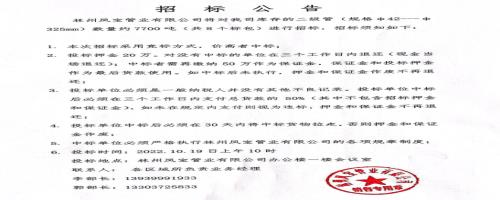 招标公告
林州凤宝管业有限公司将对我司库存的二级管（规格Φ42—Φ
325mm）数量约7700吨（共8个标包）进行招标，招标须知如下：
1、本次招标采用竞标方式，价高者中标；
2、投标押金20万，对没有中标的单位在三个工作日内退还（现金当
场退还）；中标者需再缴纳50万作为保证金，保证金和投标押金
作为最后货款使用。如中标后未执行，押金和保证金作废不再退
还；
3、投标单位必须是一般纳税人并没有其他不良记录。投标单位中标
后必须在三个工作日内支付总货款的50%（其中不包含招标押金
和保证金）。如未在规定内支付则视为违标，押金和保证金不再退
还；
4、投标单位中标后必须在30天内将中标货物拉走。否则押金和保证
金作废；
5、中标单位必须严格执行林州凤宝管业有限公司的各项规章制度；
6、投标时间：2022.10.19日上午10时
投标地点：林州凤宝管业有限公司办公楼一楼会议室
联系人：各区域所负责业务经理
李部长：13939991933
郭部长：13303725833
销售专用章